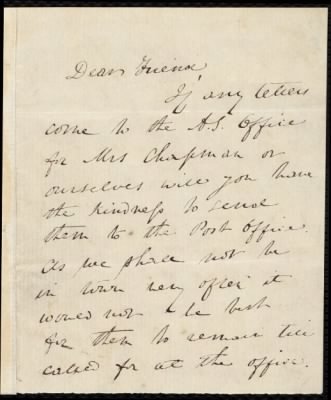 Dear Friend,
If any letters
come to the A.S. Office
for Mrs Chapman or
ourselves will you have
the kindness to send
them to the Post Office.
As we shall not be
in town very often it
would not be best
for them to remain till
called for at the office.